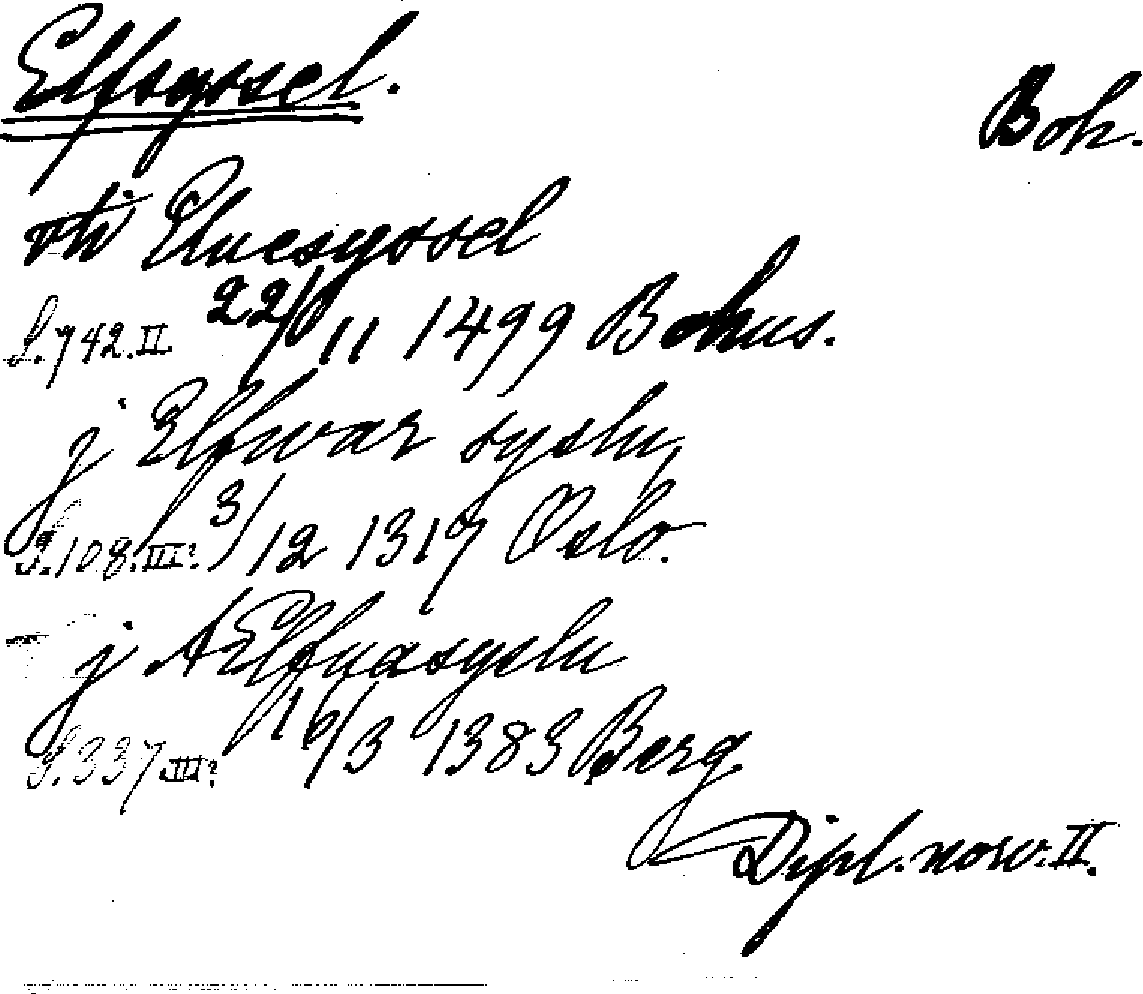 Elfsyssel. Boh.
vti Eluesyssel
S. 742. II. 22/11 1499 Bohus.
j Elfwar syslu
S. 108. III. 3/12 1317 Oslo.
j AElfuasyslu
S. 337 III. 16/3 1383 Berg
Dipl. norv. II.